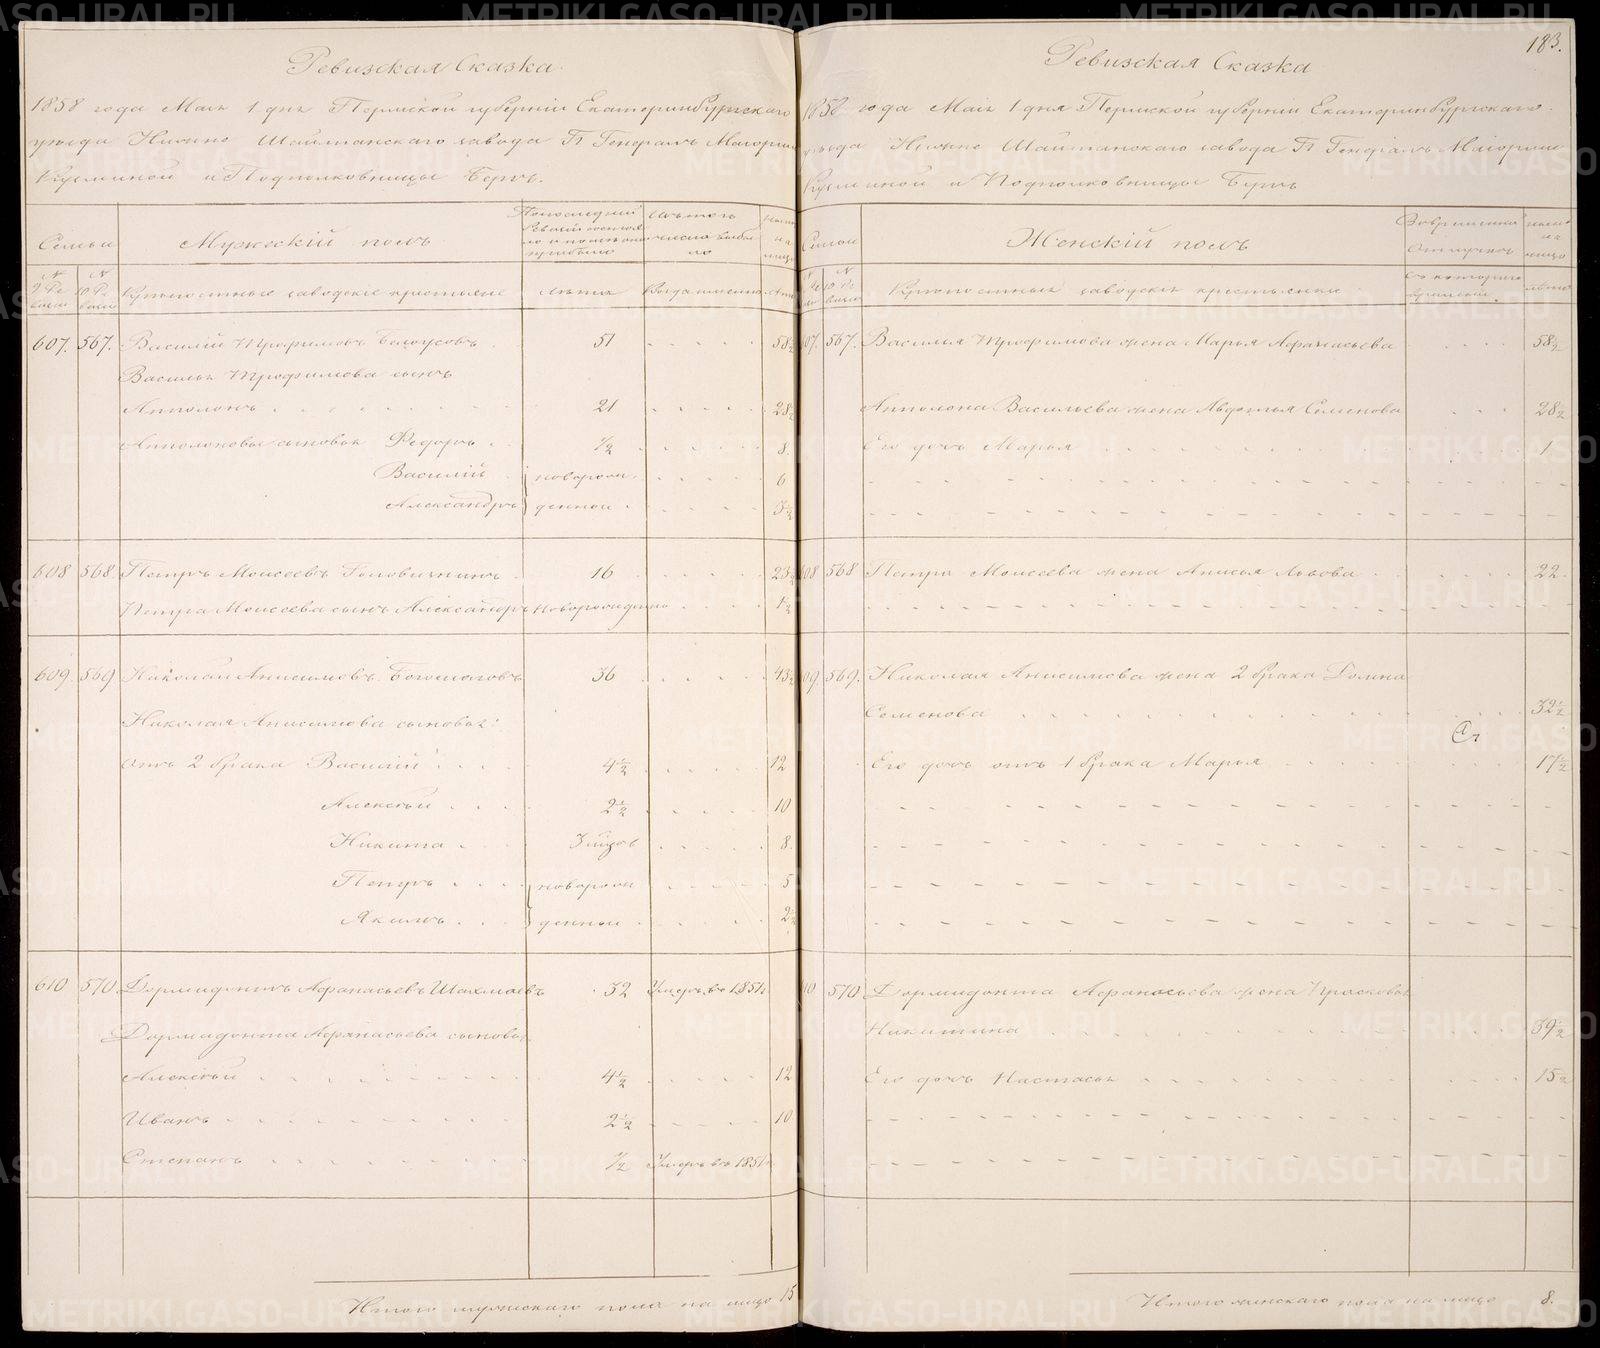 Ревизская Сказка.
1858 года Маія 1 дня Пермской губерніи Екатеринбургскаго
уѣзда Нижне Шайтанскаго завода Гг Генералъ Маіорши
Кузьминой и Подполковницы Бергъ.
Семьи
Мужескій полъ
Изъ того числа выбыло
№ 9 Ревизіи
№ 10 Ревизіи
Крѣпостные заводскіе крестьяне
лѣта
Когда именно
лѣта
607. 567. Василій Трофимовъ Бѣлоусовъ 51 58½
Василья Трофимова сынъ
Апполонъ 21 28½
Апполоновы сыновья Федоръ ½ 8
Василій новорож 6
Александръ денной 3½
608 568. Петръ Моисеевъ Головизнинъ 16 23½
Петра Моисеева сынъ Александръ Новорожденно 1½
609. 569 Николай Анисимовъ Богомоловъ 36 43½
Николая Анисимова сыновья:
отъ 2 брака Василій 4½ 12
Алексѣй 2½ 10
Никита 3 мѣсяцъ 8
Петръ новорож 5
Якимъ денные 2½
610 570. Дормидонтъ Афанасьевъ Шахмаевъ 32 Умеръ въ 1851
Дормидонта Афанасьева сыновья
Алексѣй 4½ 12
Иванъ 2½ 10
Степанъ ½ Умеръ въ 1851
Итого мужескаго пола на лицо 15
183.
Ревизская Сказка
1858 года Маія 1 дня Пермской губерніи Екатеринбургскаго
уѣзда Нижне Шайтанскаго завода Гг Генералъ Маіорши
Кузьминой и Подполковницы Бергъ
Семьи
Женскій полъ
Во временной отлучкѣ
№ 10 Ревизіи
Крѣпостныя заводскія крестьянки
съ котораго времени
лѣта
607. 567. Василья Трофимова жена Марья Афанасьева 58½
Апполона Васильева жена Авдотья Семенова 28½
Его дочь Марья 1
608 568 Петра Моисеева жена Анисья Львова 22
609. 569. Николая Анисимова жена 2 брака Голина
Семенова 32½
Его дочь отъ 1 брака Марья 17½
610 570 Дормидонта Афанасьева жена Прасковья
Никитина 39½
Его дочь Настасья 15½
Итого женскаго пола на лицо 8.
METRIKI.GASO-URAL.RU